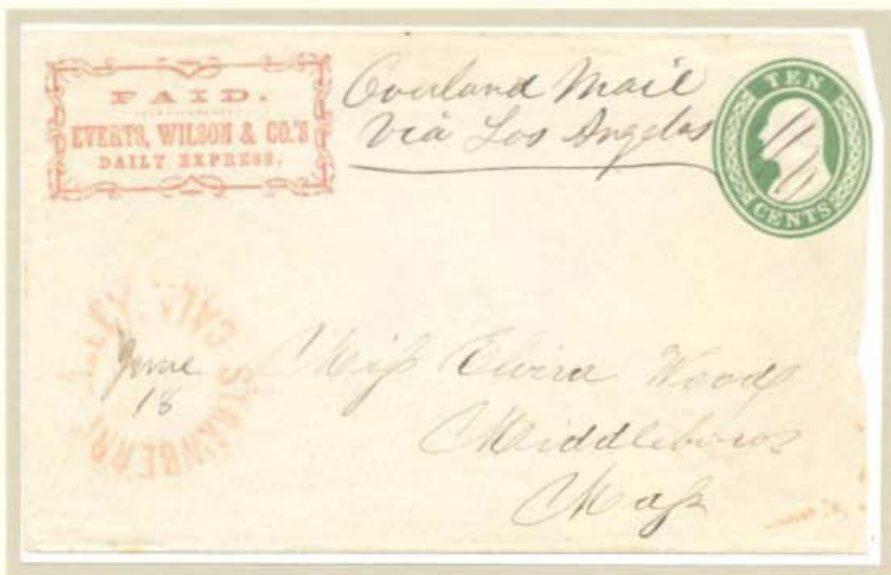 PAID.
EVERTS, WILSON & CO.'S
DAILY EXPRESS.
Overland Mail
Via Los Angelos
TEN
CENTS
STRAWBERRY
CAL.
June
18
Miss Elvira Wood
Middleboro
Mass